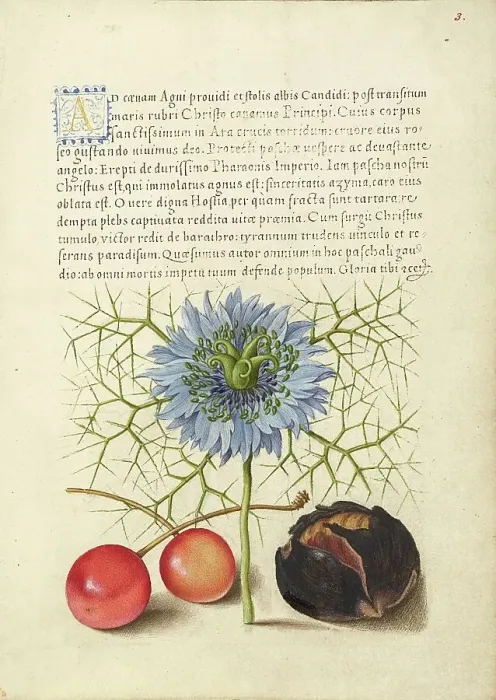 3.
AD cœnam Agni providi et stolis albis Candidi: post transitum
maris rubri Christo canamus Principi. Cuius corpus
sanctissimum in Ara crucis torridum: cruore eius ro-
seo gustando vivimus deo. Protecti paschæ vespere ac devastante
angelo: Erepti de durissimo Pharaonis Imperio. Iam pascha nostrũ
Christus est, qui immolatus agnus est: sinceritatis azyma, caro eius
oblata est. O vere digna Hostia, per quam fracta sunt tartara: re
dempta plebs captivata reddita vitæ præmia. Cum surgit Christus
tumulo, victor redit de barathro: tyrannum trudens vinculo et re-
serans paradisum. Quæsumus autor omnium in hoc paschali gau
dio: ab omni mortis impetu tuum defende populum. Gloria tibi